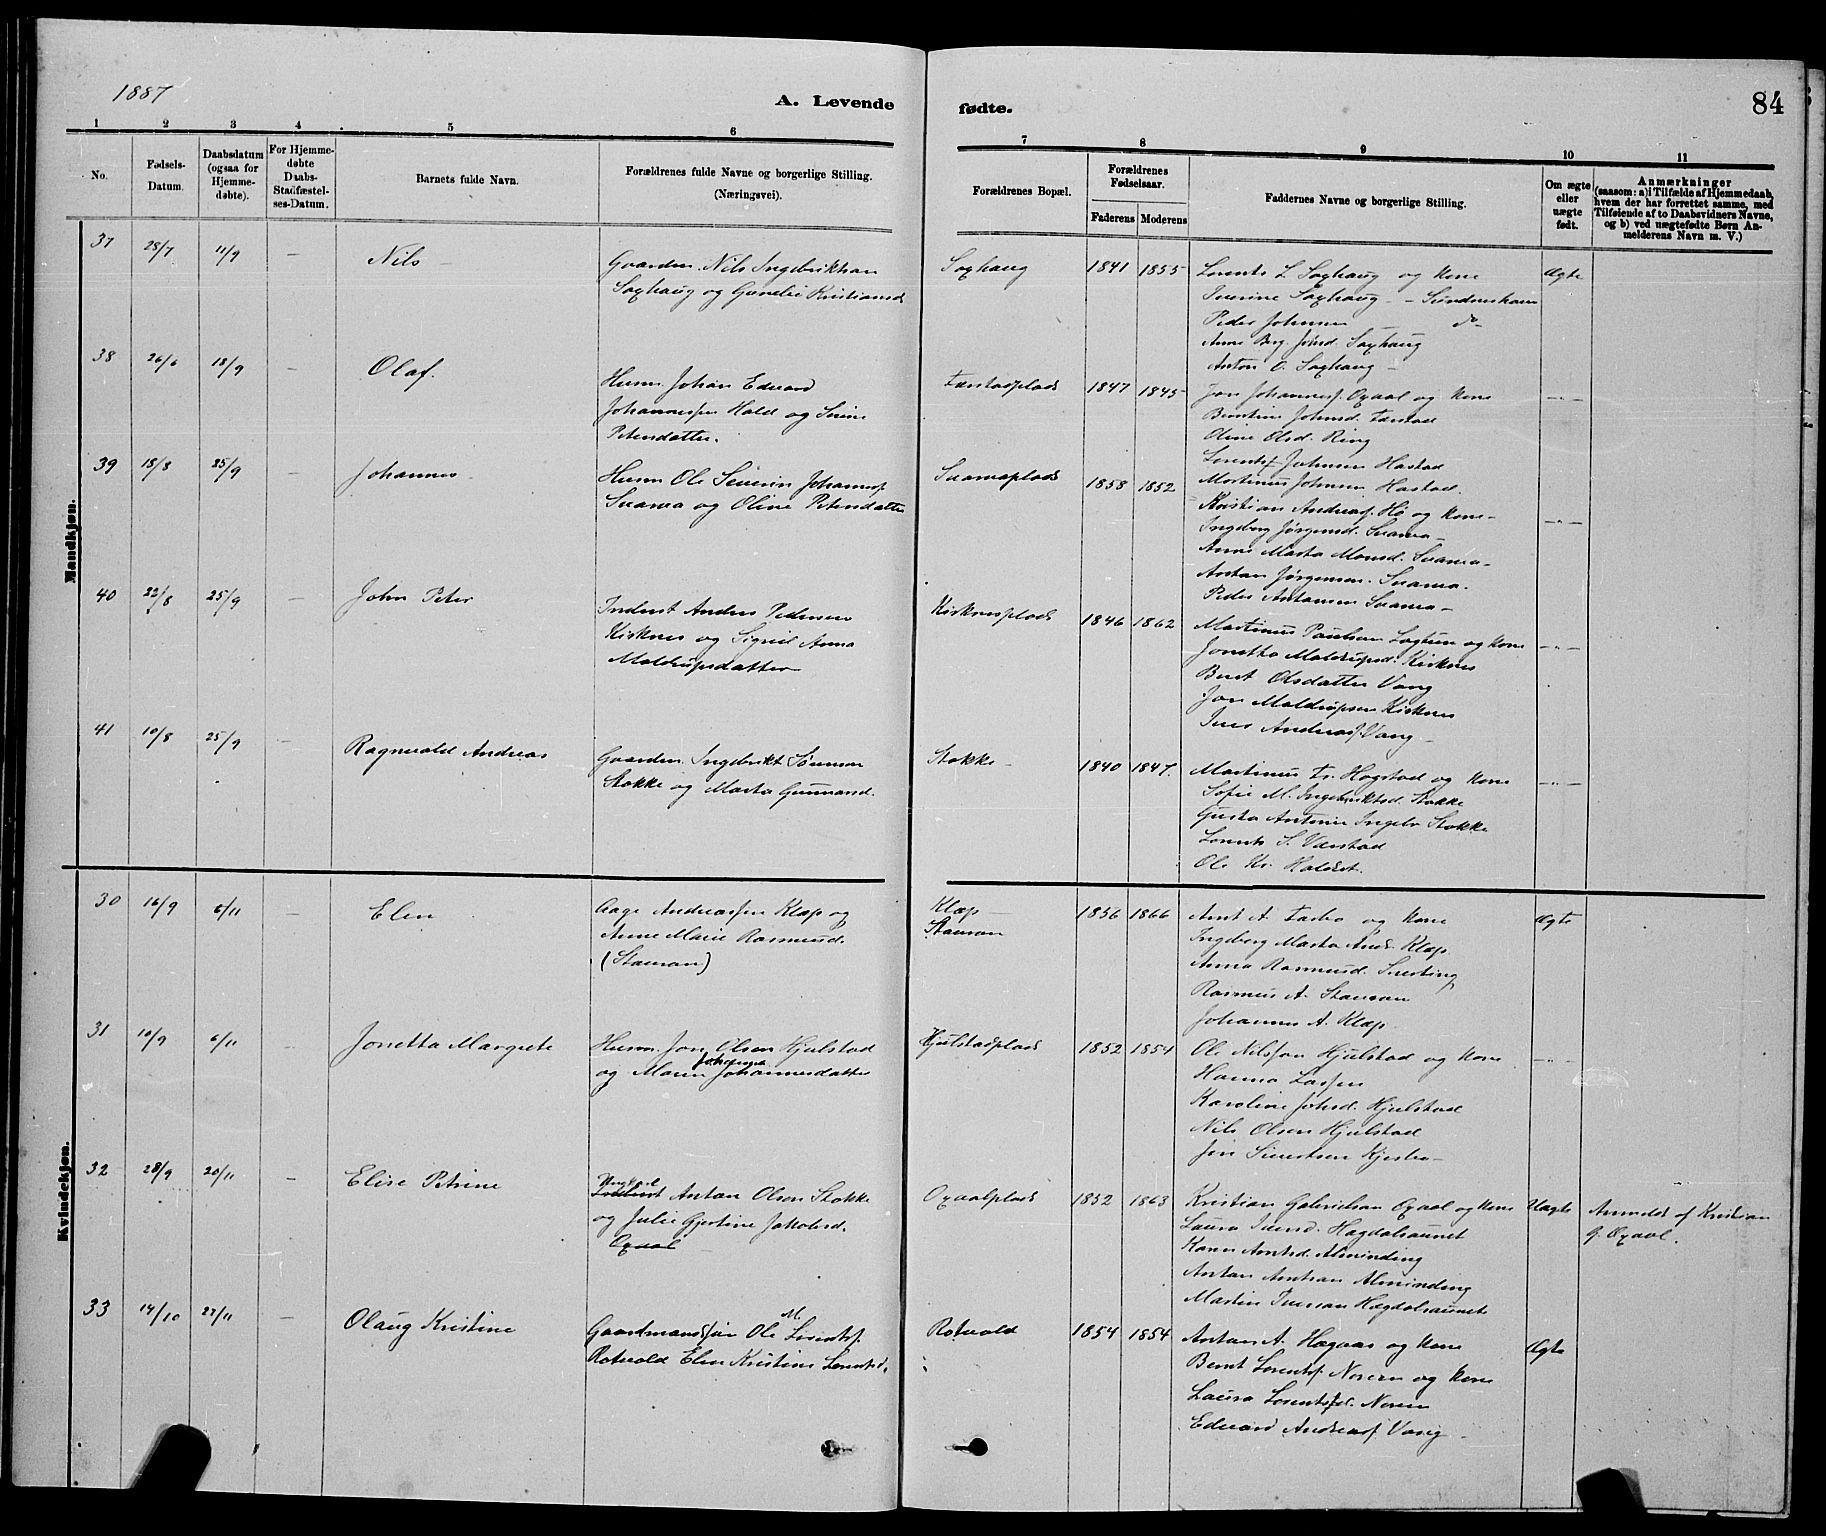 1887
A. Levende
fødte.
84
1 2 3 4 5 6 7 8 9 10 11
No.
Fødsels-
Datum.
Daabsdatum
(ogsaa for
Hjemme-
døbte).
For Hjemme-
døbte
Daabs-
Stadfæstel-
ses-Datum.
Barnets fulde Navn.
Forældrenes fulde Navne og borgerlige Stilling.
(Næringsvei).
Forældrenes Bopæl.
Forældrenes
Fødselsaar.
Faderens Moderens
Faddernes Navne og borgerlige Stilling.
Om ægte
eller
uægte
født.
Anmærkninger
(saasom: a) i Tilfælde af Hjemmedaab,
hvem der har forrettet samme, med
Tilføiende af to Daabsvidners Navne,
og b) ved uægtefødte Børn An-
melderens Navn m. V.)
Mandkjøn.
37 28/7 11/9 — Nils —
Gaardm. Nils Ingebriktsen
Saxhaug og Gunelie Kristiansd
Saxhaug 1841 1855
Lorents L Saxhaug og Kone
Iverine Saxhaug — Sundneshavn
Peder Johnsen — do
Anne Berg. Johnsd. Saxhaug
Anton O. Saxhaug —
Ægte
38 26/6 18/9 — Olaf.
Husm. Johan Edvard
Johannessen Hald og Sirine
Petersdatter.
Tarstadplads 1847 1845
Jon Johannesf. Oxaal og Kone
Berntine Johnsd. Tarstad
Oline Olsd. Ring
Lorents Johnsen Hastad
Martinus Johnsen Hastad.
—"—
39 18/8 25/9 — Johannes
Husm. Ole Severin Johannesf
Suarva og Oline Petersdatter
Suarvaplads 1858 1852
Kristian Andreasf. Hø og Kone —
Ingeborg Jørgensd. Suarva —
Anne Marta Monsd. Suarva —
Anton Jørgensen Suarva.
Peder Antonsen Suarva —
—"—
40 22/8 25/9 — John Peter
Inderst Anders Pedersen
Kirknes og Sigrid Anna
Maldrupsdatter
Kirknesplads 1846 1862
Martinus Paulsen Lagtun og Kone
Jonetta Maldrupsd. Kirknes
Beret Olsdatter Vang
Jon Maldrupsen Kirknes
Iver Andreasf. Vang —
—"—
41 10/8 25/9 — Ragnvald Andreas
Gaardm. Ingebrikt Sørensen
Stokke og Marta Gunnarsd.
Stokke — 1840 1847.
Martinus Hagstad og Kone
Sofie M. Ingebriktsd. Stokke
Gusta Antonie Ingebr Stokke
Lorents S. Varstad
Ole Kr. Holdset.
—"—
Kvindekjøn.
30 16/9 6/11 — Elen
Aage Andreassen Klæp og
Anne Marie Rasmusd.
(Stavran)
Klæp —
Stavran
1856 1866
Arnt A. Tasbo og Kone
Ingeborg Marta And. Klæp.
Anna Rasmusd. Sverting
Rasmus A. Stavran
Johannes A. Klæp.
Ægte
31 10/9 6/11 — Jonetta Margrete
Husm. Jon Olsen Hjulstad
og Maren Johanna Johannesdatter
Hjulstadplads 1852 1854
Ole Nilssen Hjulstad og Kone
Hanna Larsen
Karoline Johsd. Hjulstad
Nils Olsen Hjulstad
Jon Sivertsen Kjesbo —
—"—
32 28/9 20/11 — Elise Petrine
Ungkarl
Inderst Anton Olsen Stokke
og Julie Gjertine Jakobsd.
Oxaal
Oxaalplads 1852 1863
Kristian Gabrielsen Oxaal og Kone
Laura Iversd. Hagdalsaunet
Karen Arntsd. Alminding
Anton Antsen Alminding
Martin Iversen Hagdalsaunet
Uægte
Anmeldt af Kristian
G. Oxaal.
33 14/10 27/11 — Olaug Kristine
Gaardmandssøn Ole M. Lorentsf.
Rotvold Elen Kristine Lorentsd.
Rotvold 1854 1854
Anton A. Hegaas og Kone
Bernt Lorentsf. Noren og Kone
Laura Lorentsd. Noren
Edvard Andreasf. Vang —
Ægte